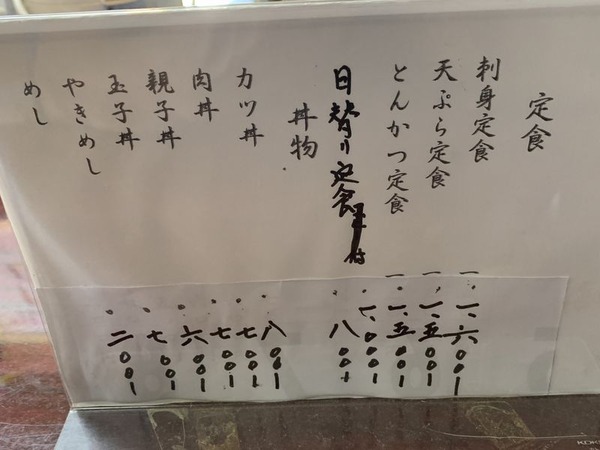 定食
刺身定食 一、六〇〇
天ぷら定食 一、五〇〇
とんかつ定食 一、五〇〇
日替り定食 付 一、〇〇〇
八〇〇
丼物
カツ丼 八〇〇
肉丼 七〇〇
親子丼 七〇〇
玉子丼 六〇〇
やきめし 七〇〇
めし 二〇〇